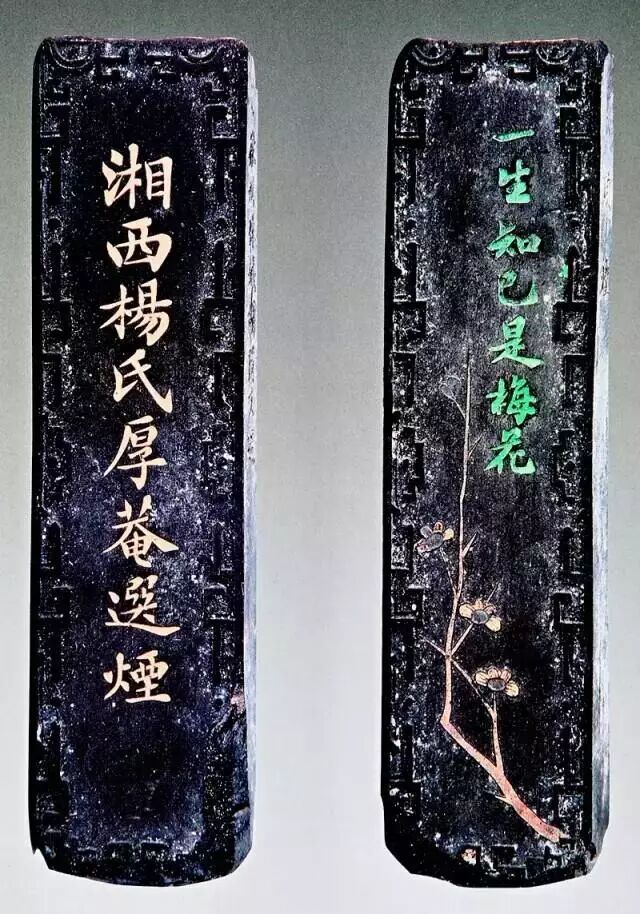 湘西楊氏厚菴選煙
一生知己是梅花